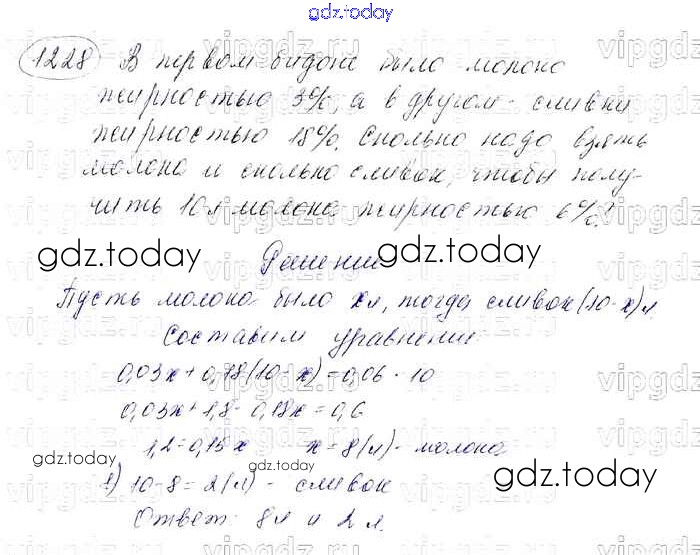 gdz.today
1228 В первом бидоне было молоко
жирностью 3%, а в другом - сливки
жирностью 18%. Сколько надо взять
молока и сколько сливок, чтобы полу-
чить 10 л молока жирностью 6%?
gdz.today gdz.today
Решение
Пусть молока было x л, тогда сливок (10-x) л.
Составим уравнение:
0,03x + 0,18(10-x) = 0,06 · 10
0,03x + 1,8 - 0,18x = 0,6
1,2 = 0,15x x = 8 (л) - молока
gdz.today gdz.today
1) 10-8 = 2 (л) - сливок
Ответ: 8 л и 2 л.
gdz.today